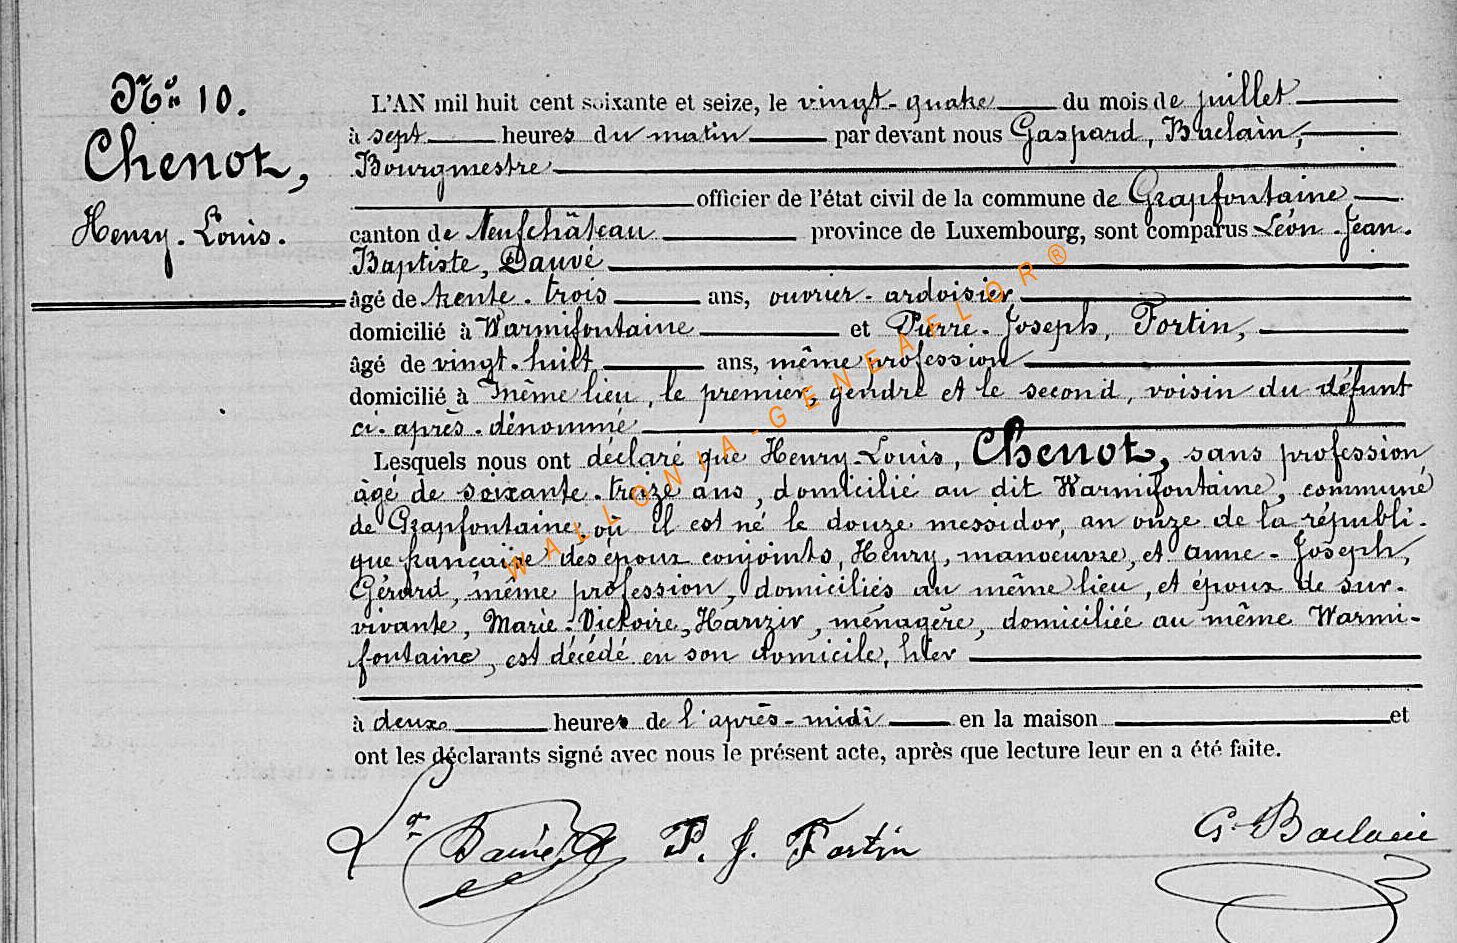 N° 10.
Chenot,
Henry-Louis.
L'AN mil huit cent soixante et seize, le vingt-quatre du mois de juillet
à sept heures du matin par devant nous Gaspard, Baclain,
Bourgmestre
officier de l'état civil de la commune de Grapfontaine
canton de Neufchâteau province de Luxembourg, sont comparus Léon-Jean-
Baptiste, Dauvé
âgé de trente-trois ans, ouvrier-ardoisier
domicilié à Warmifontaine et Pierre-Joseph, Fortin,
âgé de vingt-huit ans, même profession
domicilié à même lieu, le premier, gendre et le second, voisin du défunt
ci-après-dénommé
Lesquels nous ont déclaré que Henry-Louis, Chenot, sans profession,
âgé de soixante-treize ans, domicilié au dit Warmifontaine, commune
de Grapfontaine, où il est né le douze messidor, an onze de la républi-
que française des époux conjoints, Henry, manoeuvre, et Anne-Joseph,
Gérard, même profession, domiciliés au même lieu, et époux de sur-
vivante, Marie-Victoire, Hanzir, ménagère, domiciliée au même Warmi-
fontaine, est décédé en son domicile, hier
à deux heures de l'après-midi en la maison et
ont les déclarants signé avec nous le présent acte, après que lecture leur en a été faite.
Ln Dauvé P. J. Fortin G. Baclain
WALLONIA-GENEAFLOR®